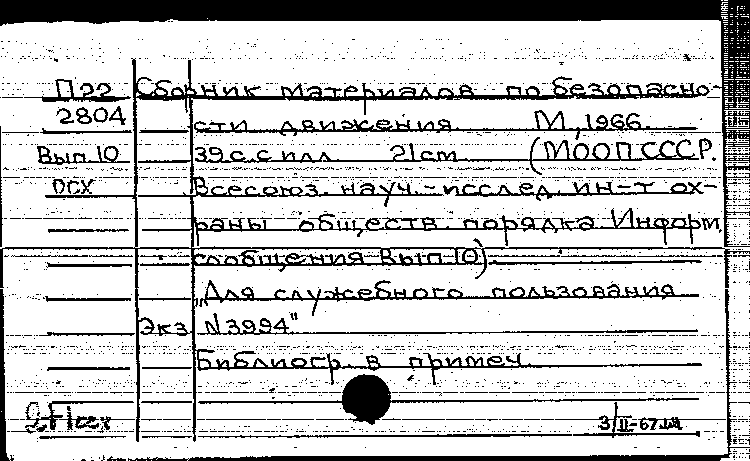 П22 Сборник материалов по безопасно-
2804 сти движения М., 1966.
Вып 10 39 с. с илл. 21 cm (МООП СССР.
Всесоюз. науч.-исслед. ин-т ох-
раны обществ. порядка Информ.
сообщения Вып 10).
"Для служебного пользования
Экз. N3994"
Библиогр. в примеч.
3/II-67